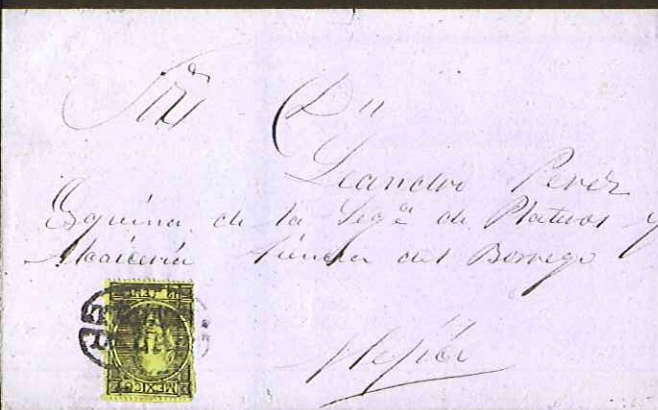 Sõr Dn
Leandro Perez
Esquina de la Segª de Plateros y
Alcaiceria tienda del Borrego
Mejico
MEXICO